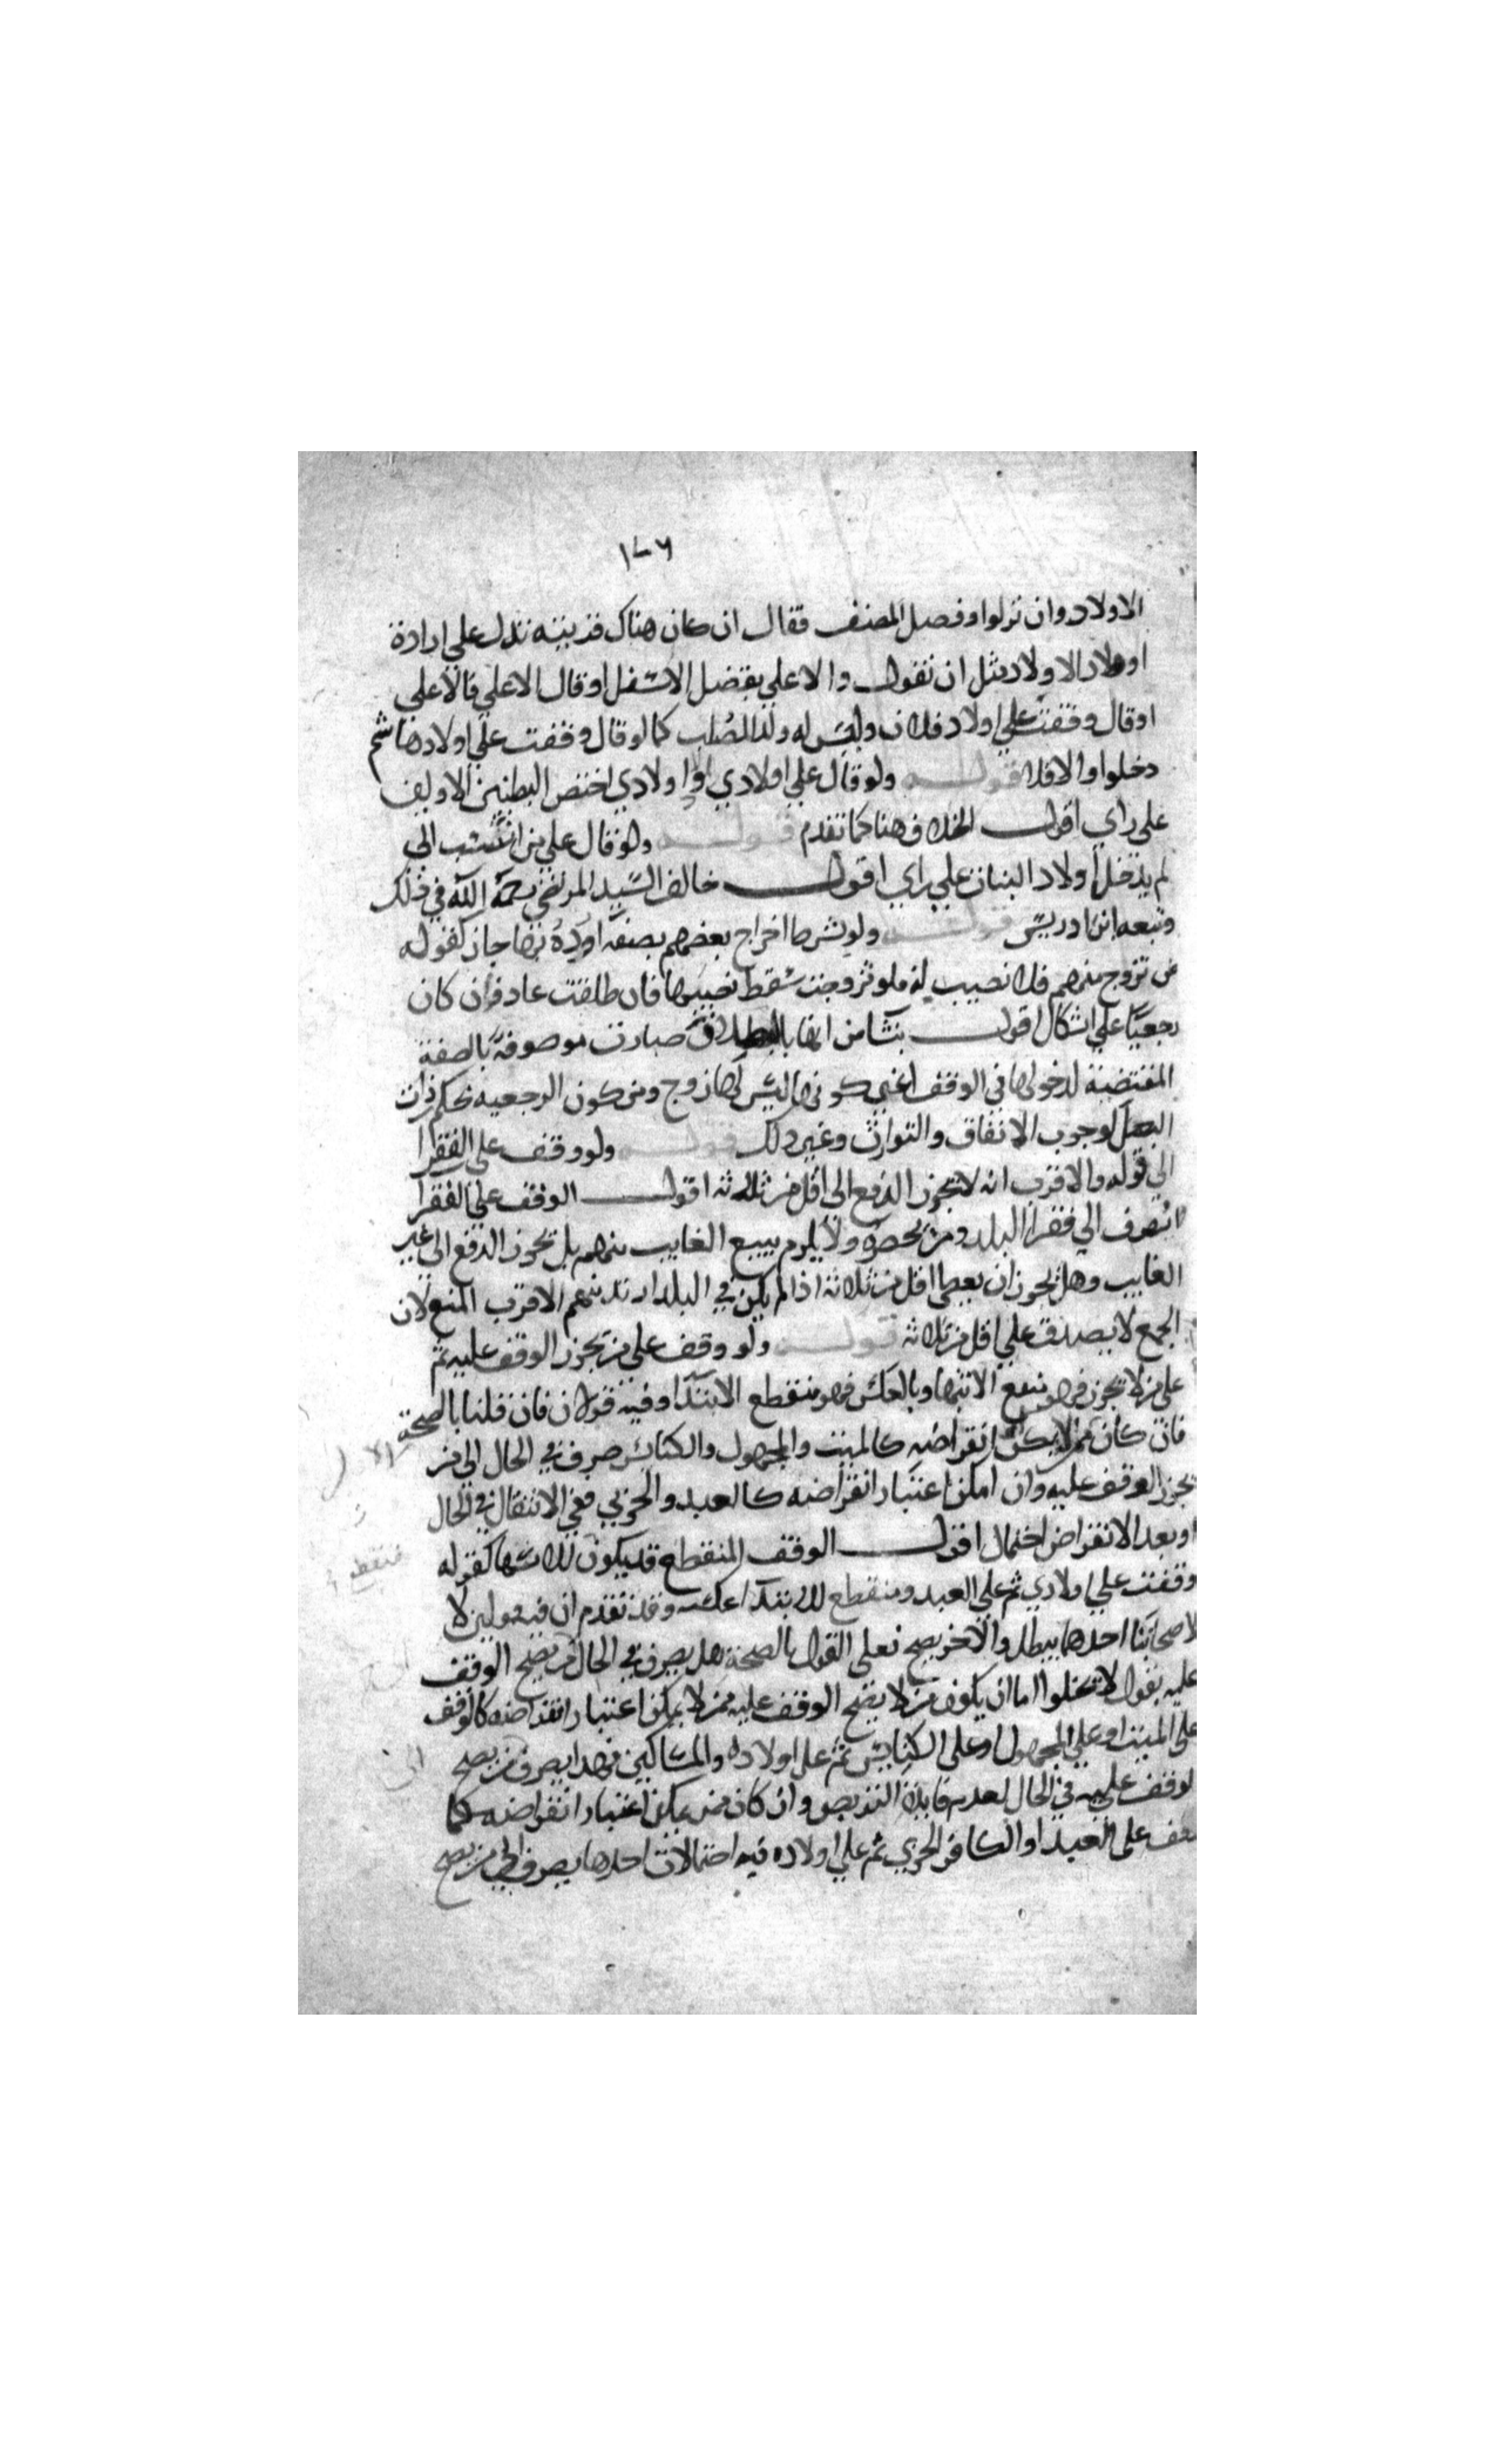 ١٧٦
الاولاد وان نزلوا وفصل المصنف فقال ان كان هناك قرينة تدل على ارادة
اولاد الاولاد مثل ان نقول والاعلى يفضل الاسفل او قال الاعلى فالاعلى
او قال وقفت على اولاد فلان وليس له ولد لصلب كما لو قال وقفت على اولاد هاشم
دخلوا والا فلا قوله ولو قال على اولادي واولاد اولادي اختص البطنين الاولين
على راي اقول الخلاف هنا كما تقدم قوله ولو قال على من انتسب الى
لم يدخل اولاد البنات على راي اقول خالف السيد المرتضى رحمه الله في ذلك
وتبعه ابن ادريس قوله ولو شرط اخراج بعضهم بصفة او رده بها جاز كقوله
من تزوج منهم فلا نصيب له فلو تزوجت سقط نصيبها فان طلقت عاد وان كان
رجعيا على اشكال اقول ينشأ من انها بالطلاق صارت موصوفة بالصفة
المقتضية لدخولها في الوقف اعني كونها ليس لها زوج ومن كون الرجعية بحكم ذات
البعل لوجوب الانفاق والتوارث وغير ذلك قوله ولو وقف على الفقرا
الى قوله والاقرب انه لا يجوز الدفع الى اقل من ثلاثة اقول الوقف على الفقرا
انصرف الى فقرا البلد ومن يحضره ولا يلزم تتبع الغايب منهم بل يجوز الدفع الى غير
الغايب وهل يجوز ان يعطى اقل من ثلاثة اذا لم يكن في البلد ازيد منهم الاقرب المنع لان
الجمع لا يصدق على اقل من ثلاثة قوله ولو وقف على من يجوز الوقف عليه ثم
على من لا يجوز فهو منقطع الانتها وبالعكس فهو منقطع الابتدا وفيه قولان فان قلنا بالصحة
فان كان ممن لا يمكن انقراضه كالميت والمجهول والكنائس صرف في الحال الى من
يجوز الوقف عليه وان امكن اعتبار انقراضه كالعبد والحربي ففي الانتقال في الحال
او بعد الانقراض احتمال اقول الوقف المنقطع قد يكون للانتها كقوله
وقفت على اولادي ثم على العبد ومنقطع الابتدا عكسه وقد تقدم ان فيه قولين لا
لاصحابنا احدهما يبطل والاخر يصح فعلى القول بالصحة هل يصرف في الحال من يصح الوقف
عليه يقول لا يخلوا اما ان يكون من لا يصح الوقف عليه ممن لا يمكن اعتبار انقراضه كالوقف
على الميت او على المجهول او على الكنايس ثم على اولاده والمساكين فهذا يصرف من يصح
لوقف عليه في الحال لعدم فايدة التربص وان كان ممن يمكن اعتبار انقراضه كما
وقف على العبد او الكافر الحربي ثم على اولاده فيه احتمالات احدها يصرف الى من يصح
منقطع
الى